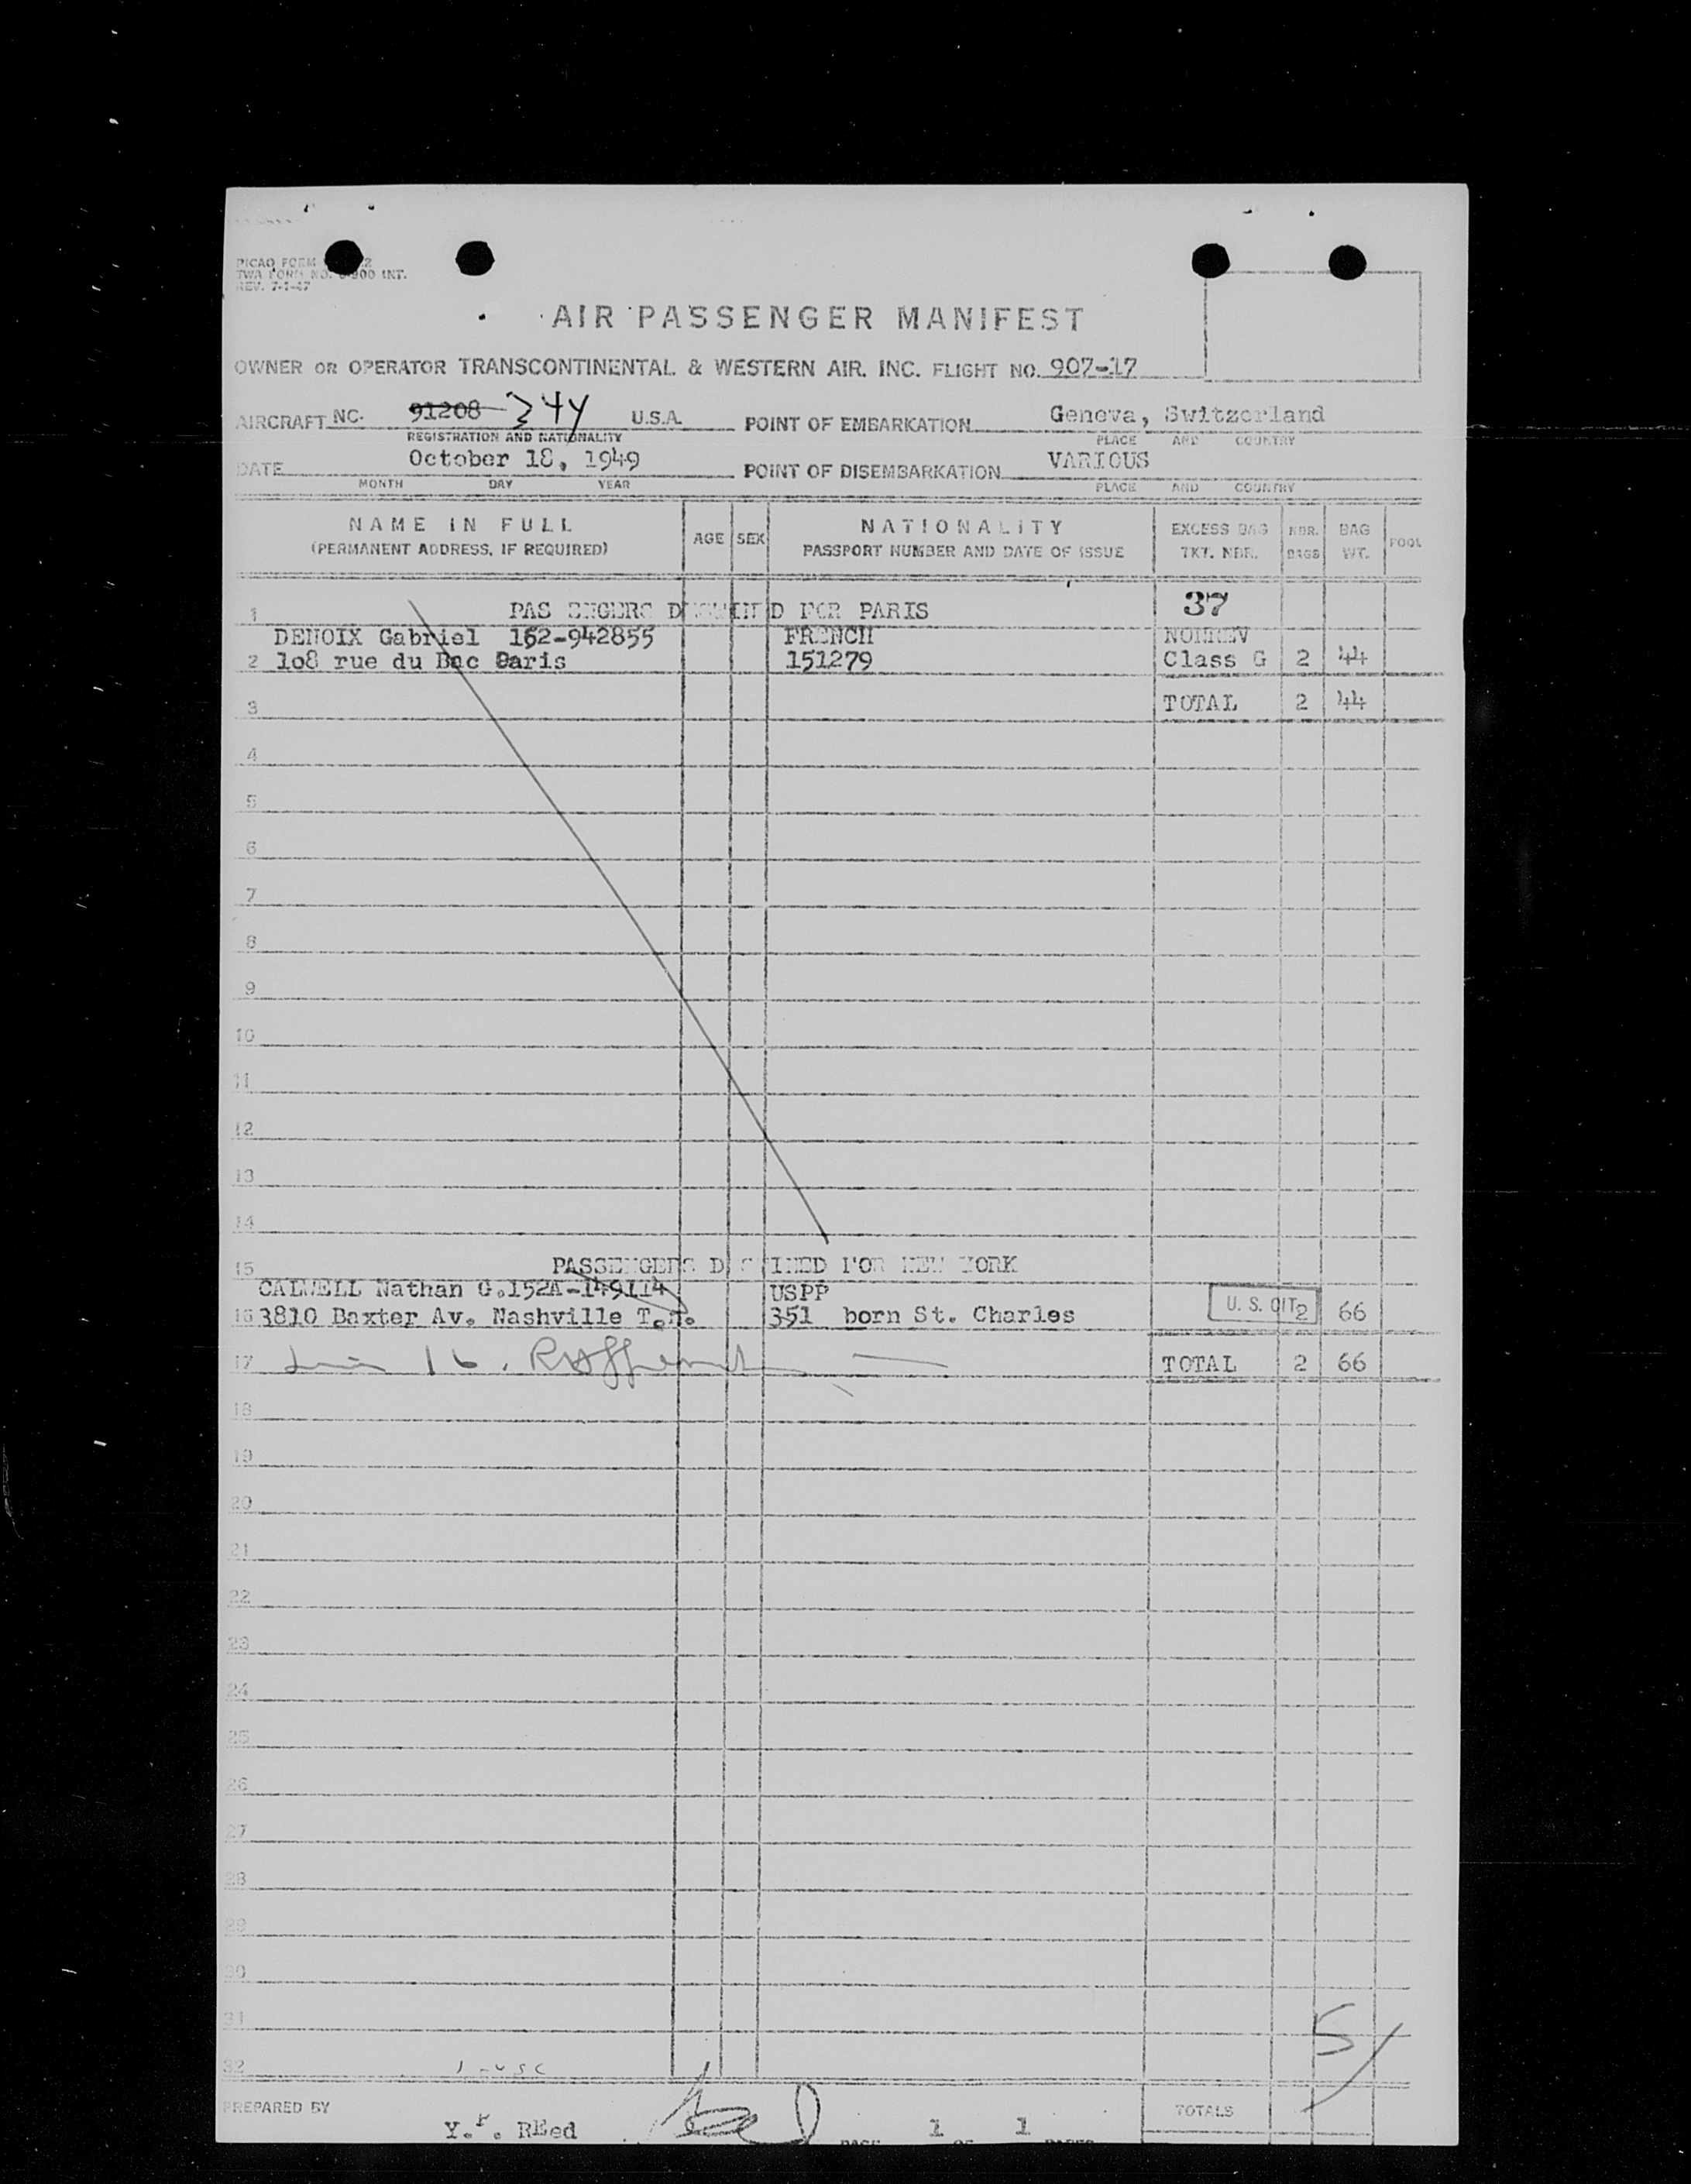 PICAO FORM
TWA FORM NO. 900 INT.
REV. 7-1-47
AIR PASSENGER MANIFEST
OWNER OR OPERATOR TRANSCONTINENTAL & WESTERN AIR. INC. FLIGHT NO. 907-17
AIRCRAFT NC. 91208 244 U.S.A. POINT OF EMBARKATION Geneva, Switzerland
REGISTRATION AND NATIONALITY PLACE AND COUNTRY
DATE October 18, 1949 POINT OF DISEMBARKATION VARIOUS
MONTH DAY YEAR PLACE AND COUNTRY
NAME IN FULL AGE SEX NATIONALITY EXCESS BAG NBR. BAG POOL
(PERMANENT ADDRESS, IF REQUIRED) PASSPORT NUMBER AND DATE OF ISSUE TKT. NBR. BAGS WT.
1 PAS ENGERS D IN D FOR PARIS 37
DENOIX Gabriel 162-942855 FRENCH NONREV
2 108 rue du Bac Paris 151279 Class G 2 44
3 TOTAL 2 44
4
5
6
7
8
9
10
11
12
13
14
15 PASSENGERS D INED FOR NEW YORK
CALWELL Nathan G.152A-149114 USPP
16 3810 Baxter Av. Nashville T.n. 351 born St. Charles U. S. CIT 2 66
17 TOTAL 2 66
18
19
20
21
22
23
24
25
26
27
28
29
30
31 5
32 1-USC
PREPARED BY TOTALS
Y.F. REed 1 1